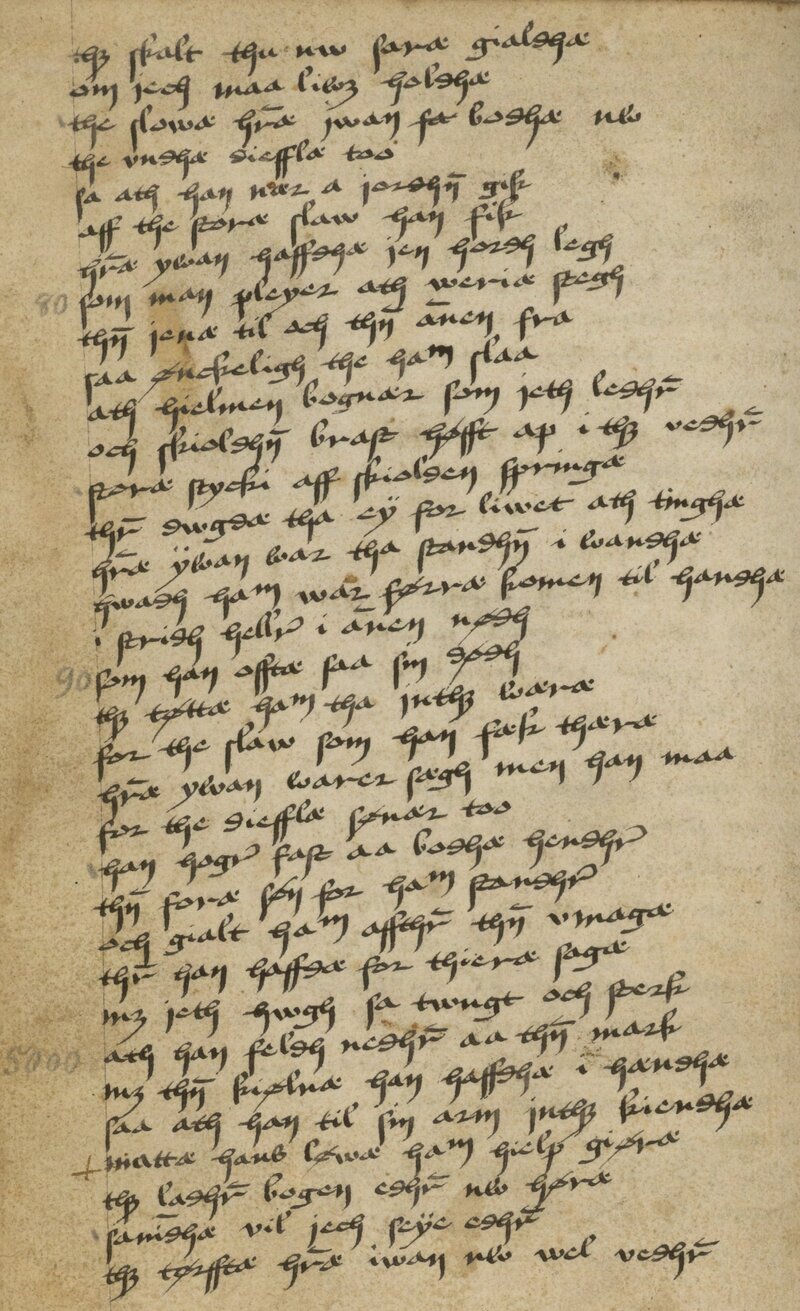 thꝫ skalt thu nw saræ gialdhæ
om jech maa liwꝫ holdhæ
the slowæ hr̄æ jwan fæ bodhæ nw
the vndhæ diefflæ too
sa ath han nær a jordhn̄ gik
aff the storæ slaw han fik
hr̄æ ywan haffdhæ jen hordh legh
80 som man pleyer ath weriæ stegh
thn̄ jenæ til och thn̄ an̄en fra
saa ønckeligh the haᵐ slaa
ath hielmen bognær som jeth ledhr̄
och skioldhn̄ brast høfft ap i thꝫ vedhr̄
storæ stycki aff skiolden springæ
thr̄ dwgdæ tha ey for liwet ath tinghæ
hr̄æ ÿwan war tha standhn̄ i wandhæ
hwadh haᵐ war førræ komen til handhæ
i stridh hellr̄ i an̄en nødh
90 som han offtæ saa sin dødh
thꝫ tøttæ haᵐ tha inthꝫ wæræ
for the slaw som han fæk thæræ
hr̄æ ywan warer sægh men han maa
for the diefflæ sønær too
han hogr̄ fast aa bodhæ hendhr̄
thn̄ foræ søn for haᵐ standhr̄
och gialt haᵐ affthr̄ thn̄ vmagæ
thr̄ han haffdæ for thieræ sagæ
mꝫ jeth hwgh sa twngt och sterk
5000 ath han feldh nedhr̄ aa thn̄ mark
mꝫ thn̄ kiølnæ han haffdhæ i hændhæ
saa ath han til sin arm inthꝫ kiendhæ
+ mattæ hans løwæ haᵐ hielp giøræ
thꝫ ladhr̄ bogen edhr̄ nw høræ
san̄dhæ vil jech seye edhr̄
thꝫ tørfftæ hr̄æ iwan nw wel vedhr̄